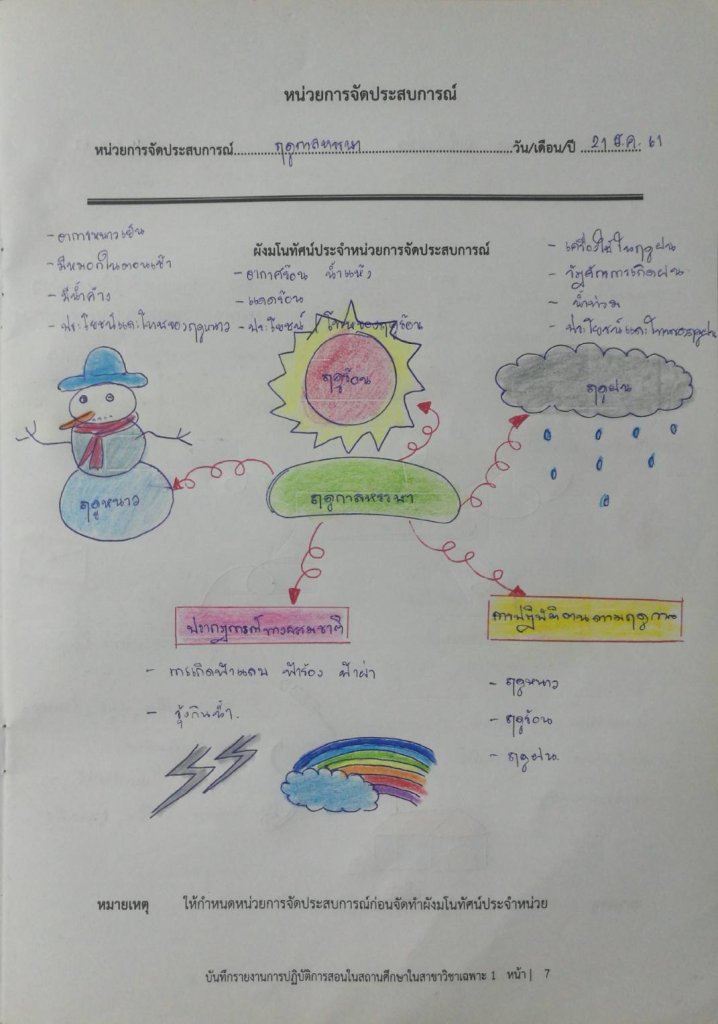 หน่วยการจัดประสบการณ์
หน่วยการจัดประสบการณ์ ฤดูกาลหรรษา วัน/เดือน/ปี 21 ธ.ค. 61
ผังมโนทัศน์ประจำหน่วยการจัดประสบการณ์
- อากาศหนาวเย็น
- มีหมอกในตอนเช้า
- มีน้ำค้าง
- ประโยชน์และโทษของฤดูหนาว
- อากาศร้อน น้ำแห้ง
- แดดร้อน
- ประโยชน์ / โทษของฤดูร้อน
- เครื่องใช้ในฤดูฝน
- วัฏจักรการเกิดฝน
- น้ำท่วม
- ประโยชน์และโทษของฤดูฝน
ฤดูร้อน
ฤดูฝน
ฤดูหนาว
ฤดูกาลหรรษา
ปรากฏการณ์ทางธรรมชาติ
- การเกิดฟ้าแลบ ฟ้าร้อง ฟ้าผ่า
- รุ้งกินน้ำ.
การปฏิบัติตนตามฤดูกาล
- ฤดูหนาว
- ฤดูร้อน
- ฤดูฝน
หมายเหตุ ให้กำหนดหน่วยการจัดประสบการณ์ก่อนจัดทำผังมโนทัศน์ประจำหน่วย
บันทึกรายงานการปฏิบัติการสอนในสถานศึกษาในสาขาวิชาเฉพาะ 1 หน้า | 7